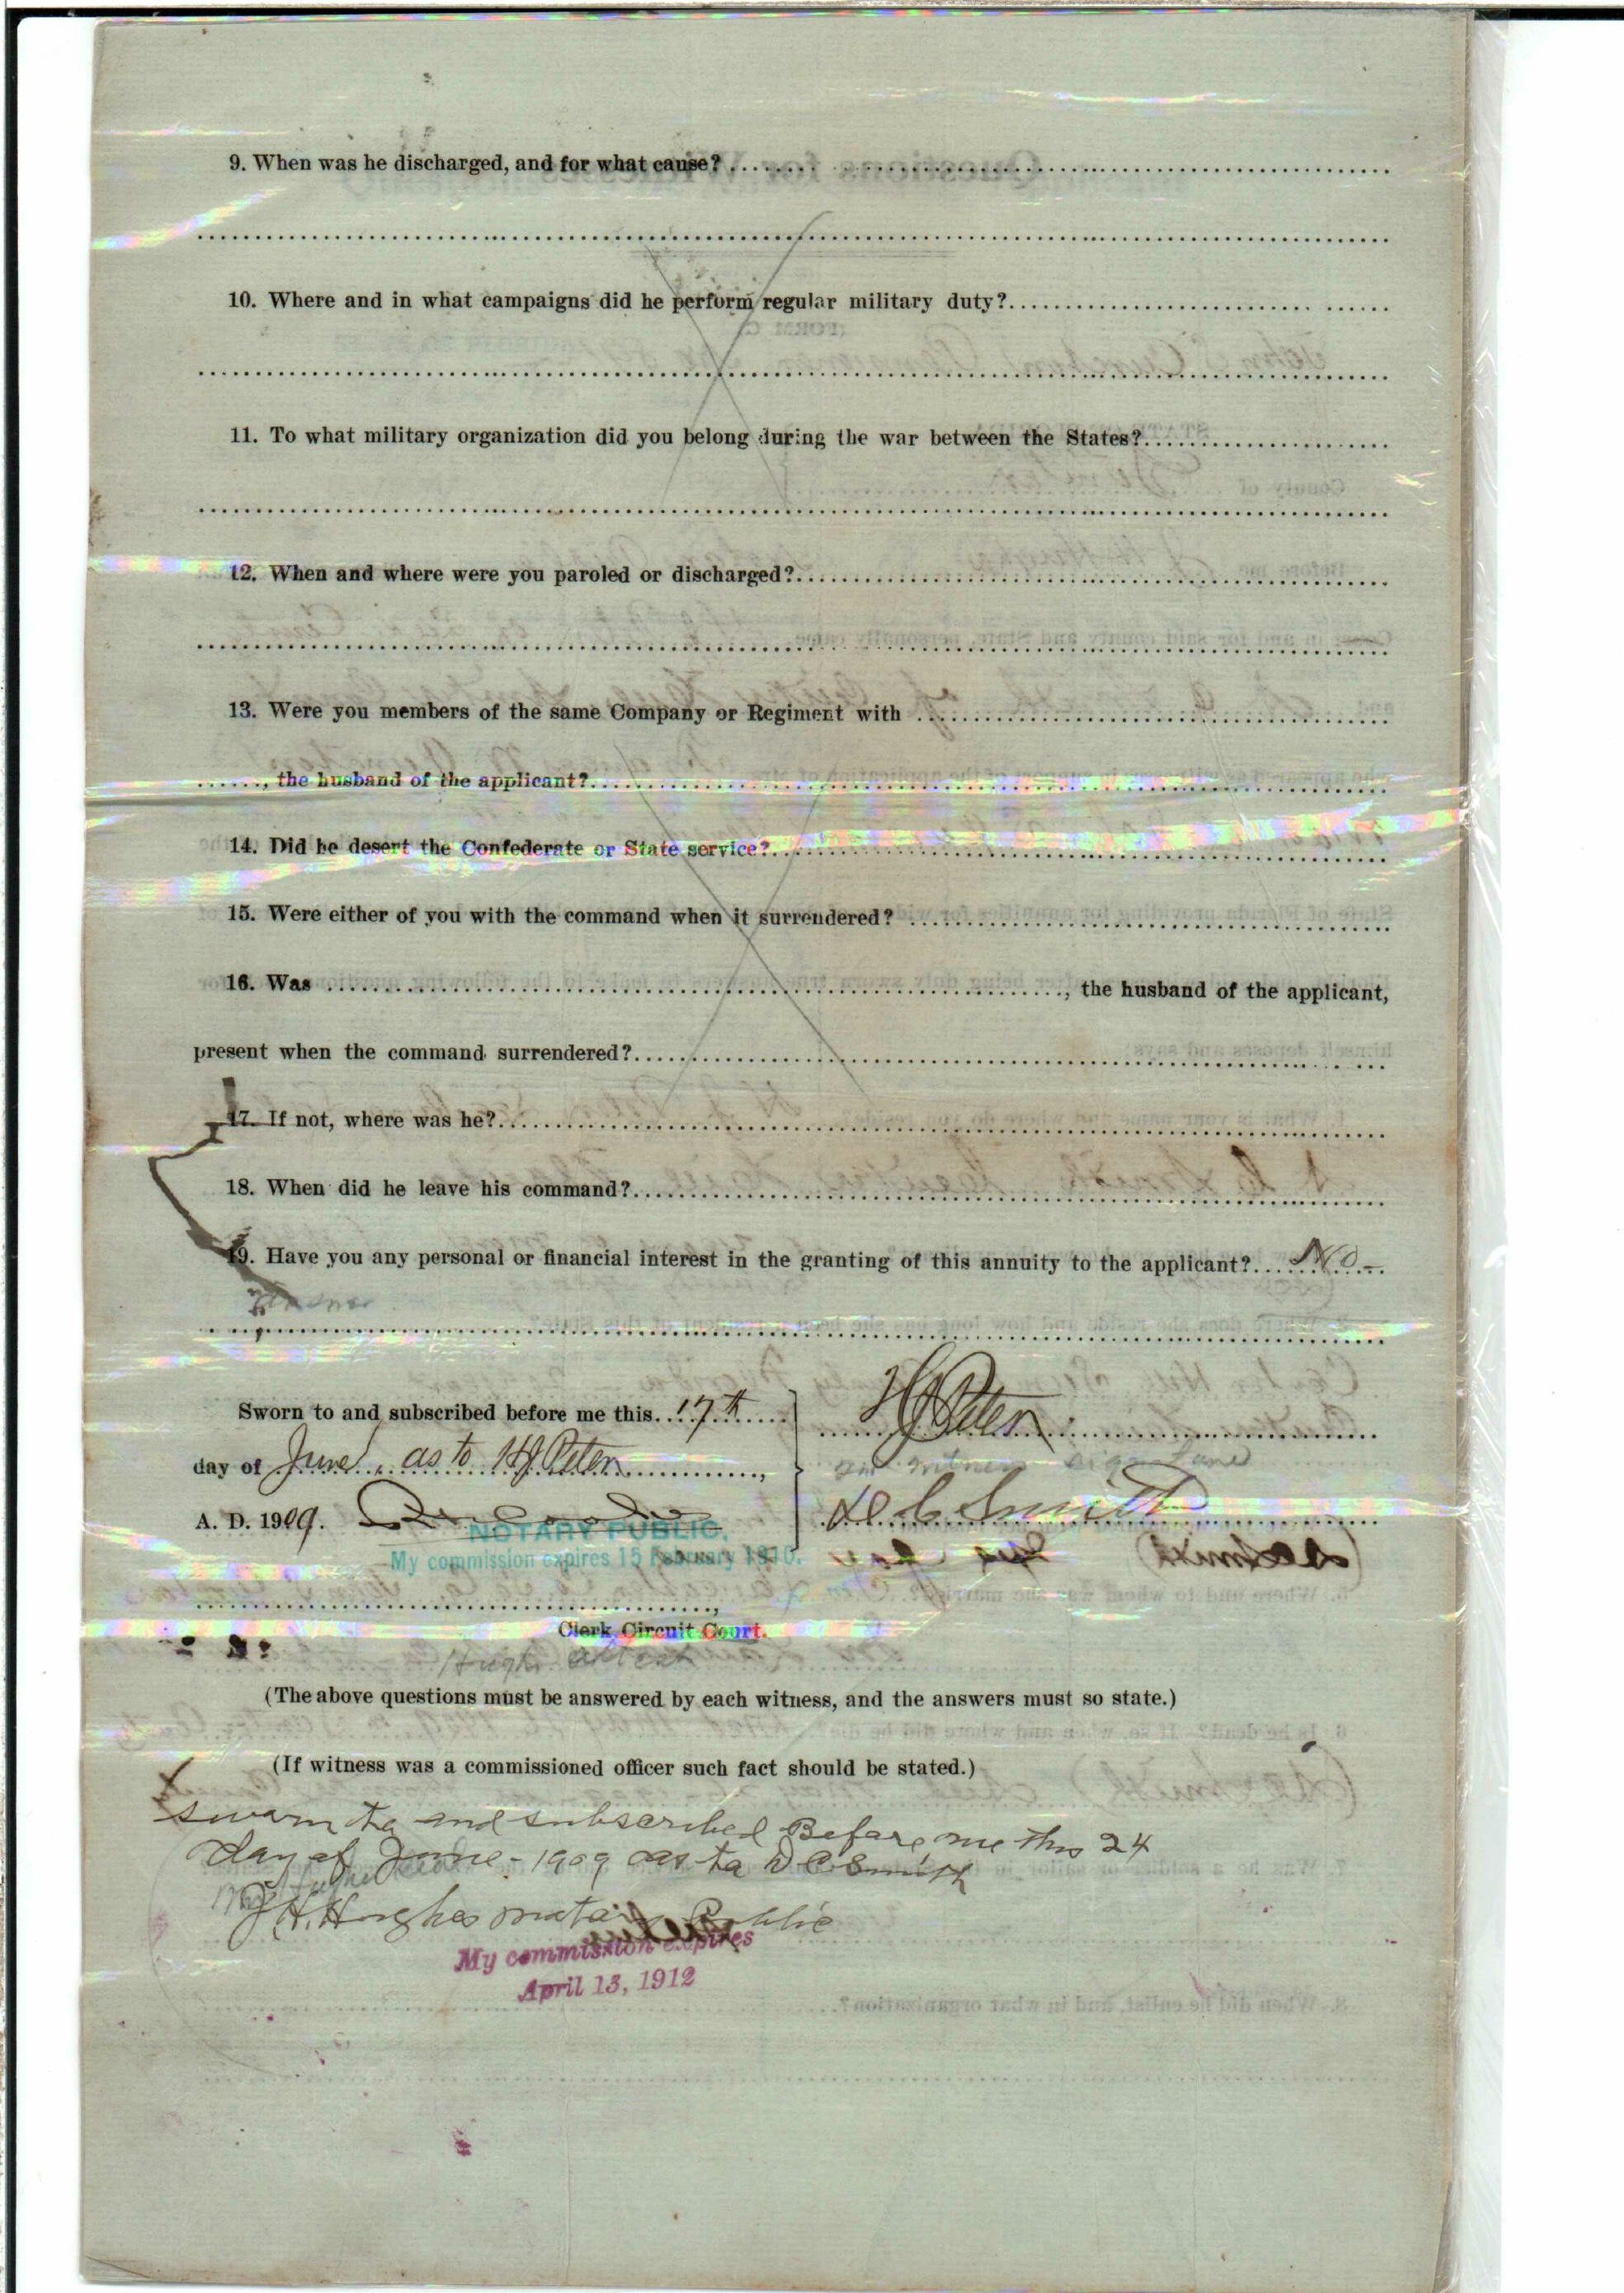 9. When was he discharged, and for what cause?
10. Where and in what campaigns did he perform regular military duty?
11. To what military organization did you belong during the war between the States?
12. When and where were you paroled or discharged?
13. Were you members of the same Company or Regiment with
, the husband of the applicant?
14. Did he desert the Confederate or State service?
15. Were either of you with the command when it surrendered?
16. Was , the husband of the applicant,
present when the command surrendered?
17. If not, where was he?
18. When did he leave his command?
19. Have you any personal or financial interest in the granting of this annuity to the applicant? No
Sworn to and subscribed before me this 17th
HJ Peter
day of June, as to HJ Peter,
A. D. 1909.
D C Smith
NOTARY PUBLIC.
My commission expires 15 February 1910.
Clerk Circuit Court.
(The above questions must be answered by each witness, and the answers must so state.)
(If witness was a commissioned officer such fact should be stated.)
sworn to and subscribed Before me this 24
day of June - 1909 as to D C Smith
J. H. Hughes notary Public
My commission expires
April 13, 1912